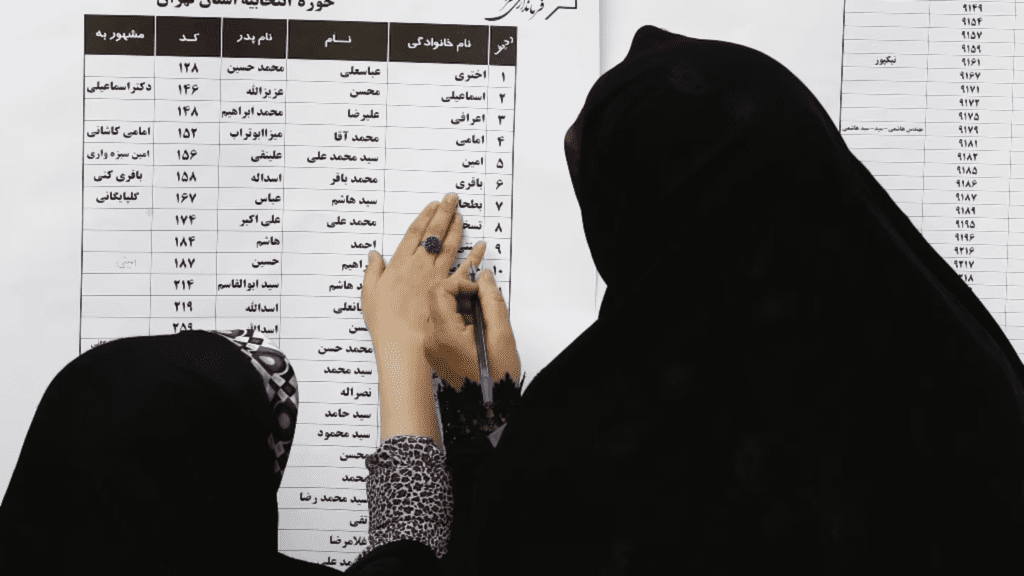 حوزه انتخابیه استان تهران
ردیف نام خانوادگی نــام نام پدر کد مشهور به
۱ اختری عباسعلی محمد حسین ۱۲۸
۲ اسماعیلی محسن عزیزالله ۱۴۶ دکتراسماعیلی
۳ اعرافی علیرضا محمد ابراهیم ۱۴۸
۴ امامی محمد آقا میرزاابوتراب ۱۵۲ امامی کاشانی
۵ امین سید محمد علی علینقی ۱۵۶ امین سبزه واری
۶ باقری محمد باقر اسداله ۱۵۸ باقری کنی
۷ سید هاشم عباس ۱۶۷ گلپایگانی
۸ محمد علی علی اکبر ۱۷۴
۹ احمد هاشم ۱۸۴
۱۰ حسین ۱۸۷
هاشم سید ابوالقاسم ۲۱۴
اسدالله ۲۱۹
۲۵۹
محمد حسن
سید محمد
نصراله
سید حامد
سید محمود
محسن
محمد
سید محمد رضا
تقی
غلامرضا
علی
۹۱۴۹
۹۱۵۴
۹۱۵۷
۹۱۵۹
۹۱۶۱ نیکپور
۹۱۶۷
۹۱۷۱
۹۱۷۲
۹۱۷۵
۹۱۷۹ مهندس هاشمی - سید - سید هاشمی
۹۱۸۱
۹۱۸۲
۹۱۸۵
۹۱۸۶
۹۱۸۷
۹۱۸۹
۹۱۹۵
۹۱۹۶
۹۲۱۶
۹۲۱۷